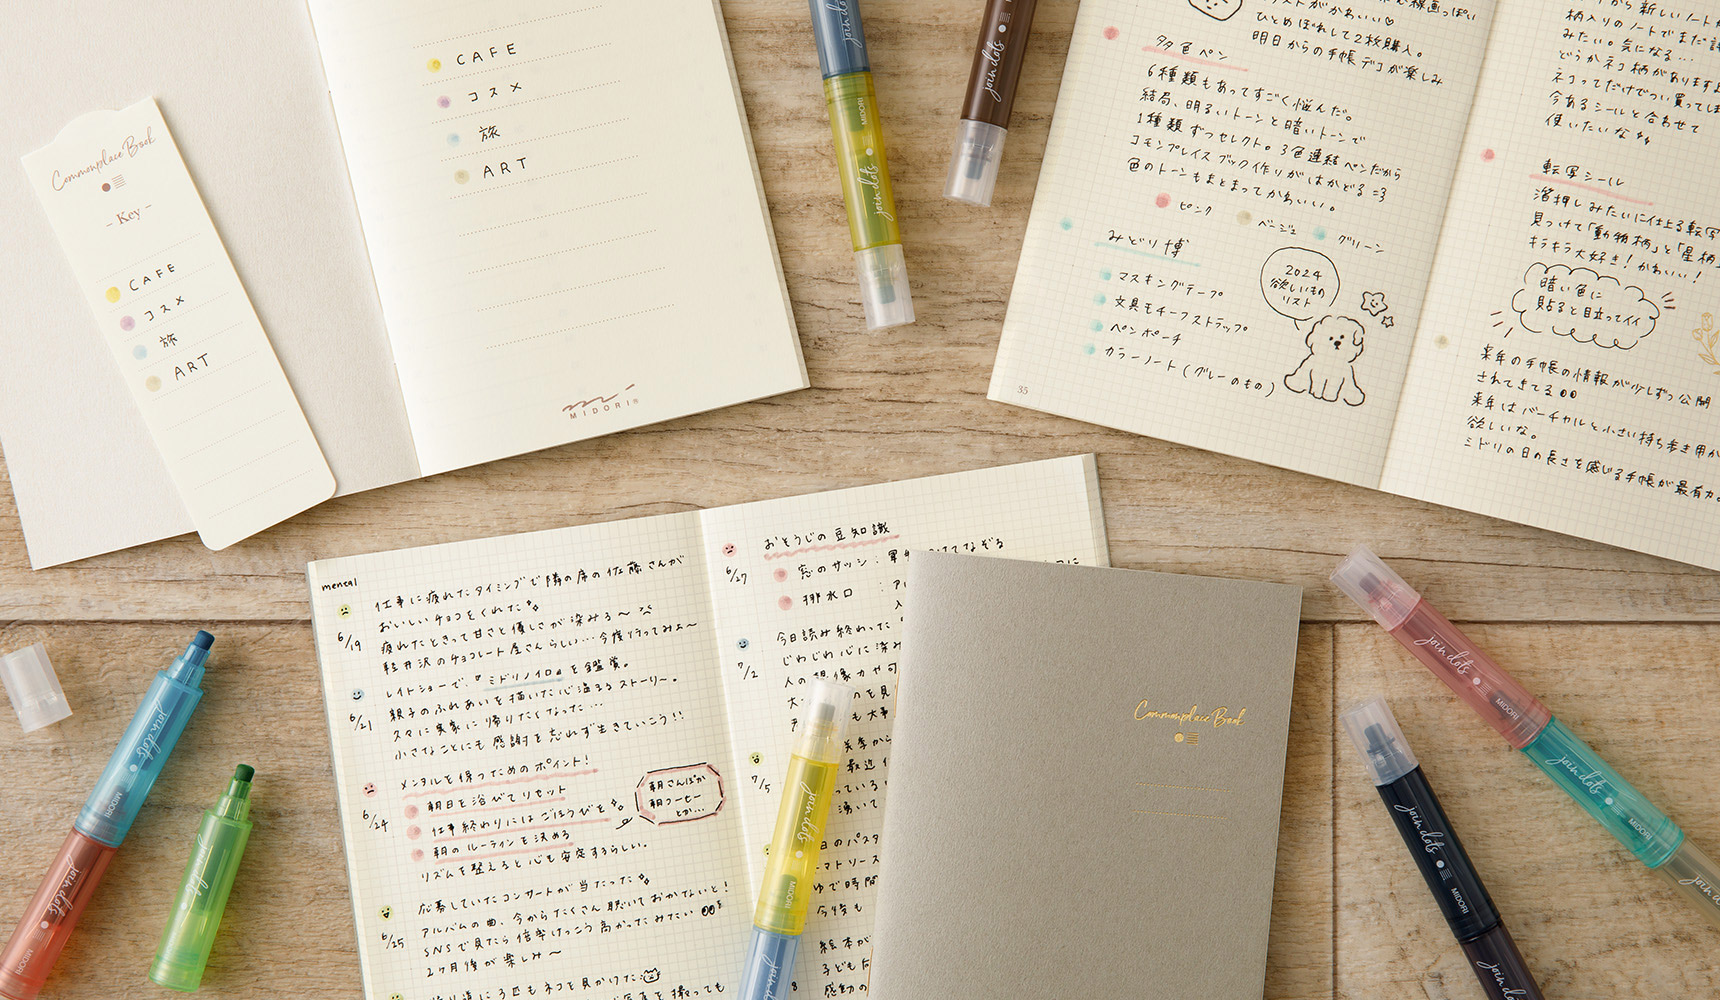 CAFE
コスメ
旅
ART
MIDORI®
Commonplace Book
- Key -
CAFE
コスメ
旅
ART
ひとめぼれして2枚購入。
明日からの手帳デコが楽しみ
多色ペン
6種類もあってすごく悩んだ。
結局、明るいトーンと暗いトーンで
1種類ずつセレクト。3色連結ペンだから
コモンプレイスブック作りがはかどる=3
色のトーンもまとまってかわいい。
ピンク
ベージュ
グリーン
みどり博
マスキングテープ
文具モチーフストラップ
ペンポーチ
カラーノート(グレーのもの)
2024
欲しいもの
リスト
35
柄入りのノートでまだ
みたい。気になる…
どうかネコ柄があります
ネコってだけでつい買ってしま
今あるシールと合わせて
使いたいな
転写シール
箔押しみたいに仕上る転写
見つけて「動物柄」と「星柄
キラキラ大好き!かわいい!
暗い色に
貼ると目立ってイイ
来年の手帳の情報が少しずつ公開
されてきてる
来年はバーチカルと小さい持ち歩き用が
欲しいな。
ミドリの日の長さを感じる手帳が最有力。
mental
6/19
仕事に疲れたタイミングで隣の席の佐藤さんが
おいしいチョコをくれた
疲れたときって甘さと優しさが染みる〜
軽井沢のチョコレート屋さんらしい…今度行ってみよ〜
6/21
レイトショーで、『ミドリノイロ』を鑑賞。
親子のふれあいを描いた心温まるストーリー。
久々に実家に帰りたくなった…
小さなことにも感謝を忘れず生きていこう!!
6/24
メンタルを保つためのポイント!
朝日を浴びてリセット
仕事終わりにはごほうびを
朝のルーティンを決める
リズムを整えると心も安定するらしい。
朝さんぽか
朝コーヒー
とか…
6/25
応募していたコンサートが当たった
アルバムの曲、今からたくさん聴いておかないと!
SNSで見たら倍率けっこう高かったみたい
2ヶ月後が楽しみ〜
に3匹もネコを見かけた
6/27
おそうじの豆知識
窓のサッシ:
てなぞる
排水口:
7/2
今日読み終わった
じわじわ心に染み
人の想像力や
7/5
のパスタ
ソース
ゆで時間
今後も
絵本が
子ども
感動の
Commonplace Book
join dots
MIDORI
join dots
join dots
MIDORI
join dots
MIDORI
join dots
MIDORI
join dots
MIDORI
join dots
join dots
MIDORI
join dots
MIDORI
join dots
join dots
MIDORI
join dots